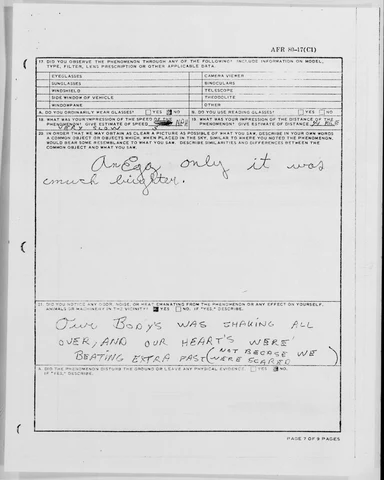 AFR 80-17(C1)
17. DID YOU OBSERVE THE PHENOMENON THROUGH ANY OF THE FOLLOWING? INCLUDE INFORMATION ON MODEL, TYPE, FILTER, LENS PRESCRIPTION OR OTHER APPLICABLE DATA.
EYEGLASSES CAMERA VIEWER
SUNGLASSES BINOCULARS
WINDSHIELD TELESCOPE
SIDE WINDOW OF VEHICLE THEODOLITE
WINDOWPANE OTHER
A. DO YOU ORDINARILY WEAR GLASSES? YES NO B. DO YOU USE READING GLASSES? YES NO
18. WHAT WAS YOUR IMPRESSION OF THE SPEED OF THE PHENOMENON? GIVE ESTIMATE OF SPEED
VERY SLOW
19. WHAT WAS YOUR IMPRESSION OF THE DISTANCE OF THE PHENOMENON? GIVE ESTIMATE OF DISTANCE MILE
20. IN ORDER THAT WE MAY OBTAIN AS CLEAR A PICTURE AS POSSIBLE OF WHAT YOU SAW, DESCRIBE IN YOUR OWN WORDS
A COMMON OBJECT OR OBJECTS WHICH, WHEN PLACED IN THE SKY, SIMILAR TO WHERE YOU NOTED THE PHENOMENON,
WOULD BEAR SOME RESEMBLANCE TO WHAT YOU SAW. DESCRIBE SIMILARITIES AND DIFFERENCES BETWEEN THE
COMMON OBJECT AND WHAT YOU SAW.
An Egg only it was
much brighter.
21. DID YOU NOTICE ANY ODOR, NOISE, OR HEAT EMANATING FROM THE PHENOMENON OR ANY EFFECT ON YOURSELF,
ANIMALS OR MACHINERY IN THE VICINITY? YES NO. IF "YES," DESCRIBE.
OUR BODYS WAS SHAKING ALL
OVER, AND OUR HEART'S WERE
BEATING EXTRA FAST (NOT BECAUSE WE
WERE SCARED)
A. DID THE PHENOMENON DISTURB THE GROUND OR LEAVE ANY PHYSICAL EVIDENCE? YES NO.
IF "YES," DESCRIBE.
PAGE 7 OF 9 PAGES